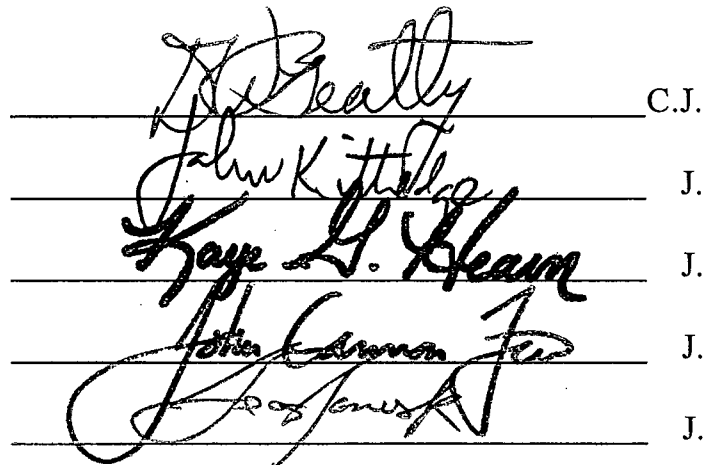 Beatty C.J.
John Kittredge J.
Kaye G. Hearn J.
John Cannon Few J.
Geo James Jr J.